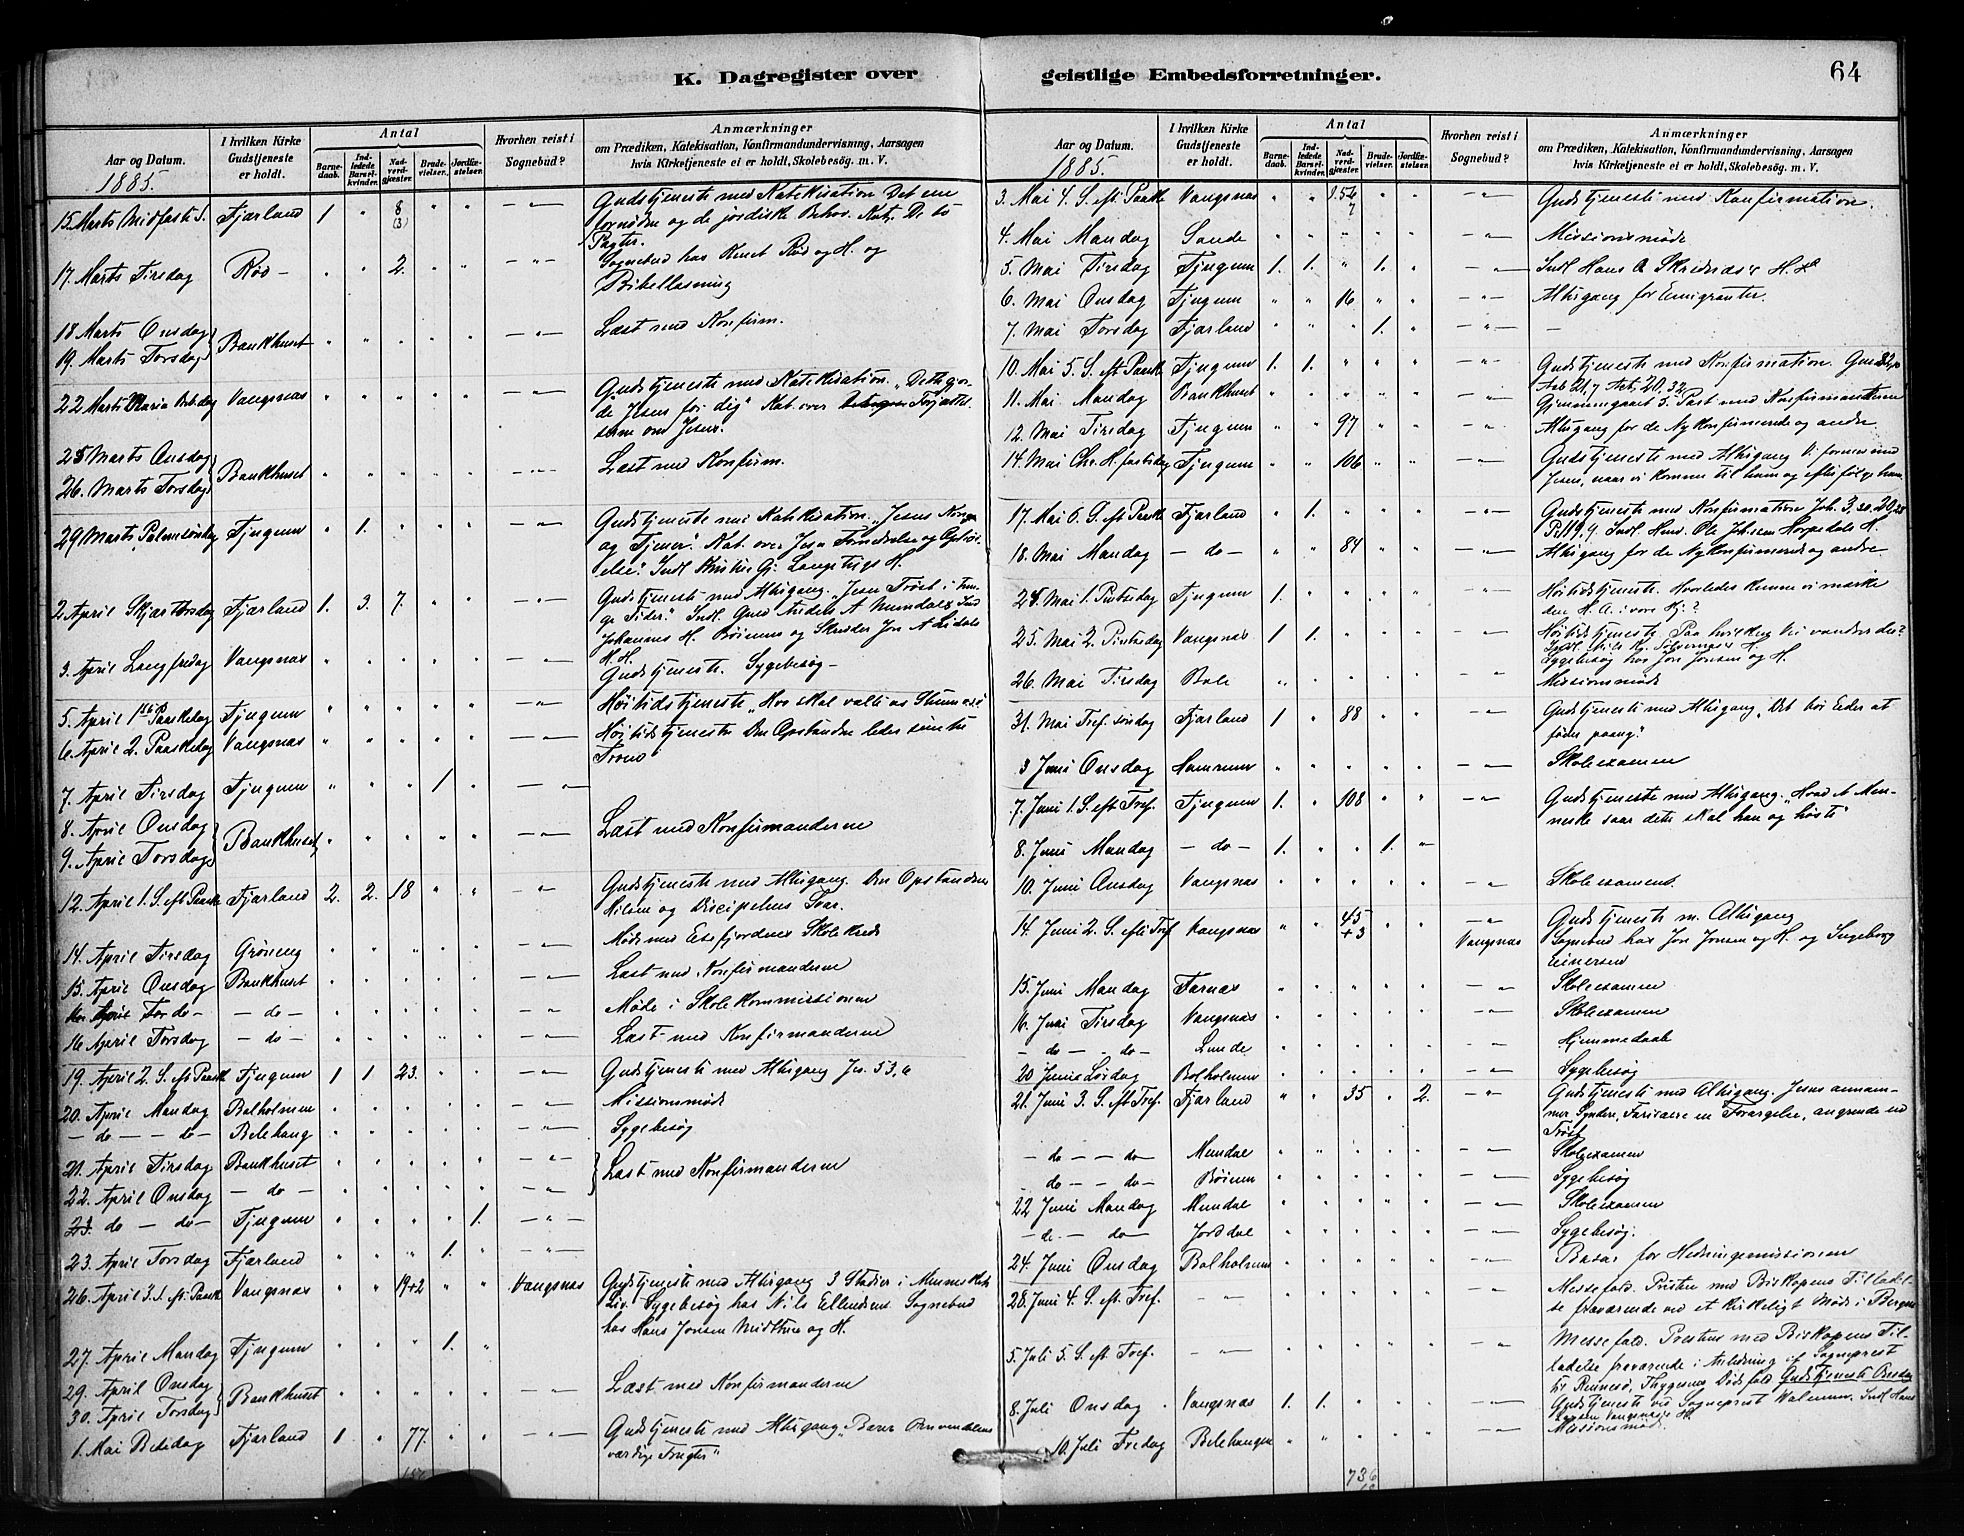 K. Dagregister over geistlige Embedsforretninger.
64
Aar og Datum.
1885.
I hvilken Kirke Gudstjeneste er holdt.
Antal
Barnedaab.
Indledede Barselkvinder.
Nadverdgjæster.
Brudevielser.
Jordfæstelser.
Hvorhen reist i Sognebud?
Anmærkninger
om Prædiken, Katekisation, Konfirmandundervisning, Aarsagen
hvis Kirketjeneste ei er holdt, Skolebesøg. m. V.
15. Marts Midfaste S. Fjærland 1 " 8 (3) " " Gudstjeneste med Katekisation Det ene
fornødne og de jordiske Behov. Kat. De to
Pagter.
17. Marts Tirsdag Rød - " " 2. " " Sognebud hos Knut Rød og H. og
Bibellæsning
18 Marts Onsdag
19. Marts Torsdag Bankhuset Læst med Konfirm.
22 Marts Maria Beb.dag Vangsnæs Gudstjeneste med Katekisation. "Dette gjor-
de Jesus for dig" Kat. over Forjættel-
serne om Jesus.
25 Marts Onsdag
26. Marts Torsdag Bankhuset Læst med Konfirm.
29 Marts Palmesøndag Tjugum " 1. Gudstjeneste med Katekisation. "Jesus Konge
og Tjener". Kat. over Jesu Fornedrelse og Ophøi-
else.
2. April Skjærtorsdag Fjærland 1. 3. 7. Gudstjeneste med Altergang. "Jesu Trøst i
ge Tider". Indl.
Johannes H. Bøiums og Skræder Jon A
H. H.
3. April Langfredag Vangsnæs Gudstjeneste. Sygebesøg -
5. April 1ste Paaskedag Tjugum Høitidstjeneste "Hvo skal vælte os Stenen
6. April 2. Paaskedag Vangsnæs Høitidstjeneste Den Opstandne leder sine til
Troen
7. April Tirsdag Tjugum 1.
8. April Onsdag
9. April Torsdag Bankhuset Læst med Konfirmanderne
12. April 1. S. eft Paaske Fjærland 2. 2. 18 Gudstjeneste med Altergang. Den Opstandnes
Hilsen og Disciplenes Svar.
14. April Tirsdag Grøneng Møde med Esefjordens Skolekreds
15. April Onsdag Bankhuset Læst med Konfirmanderne
do - - do - Møde i Skolekommissionen
16 April Torsdag - do - Læst med Konfirmanderne
19. April 2. S. eft Paaske Tjugum 1 1 23. Gudstjeneste med Altergang Jes. 53,6
20. April Mandag Balholmen Missionsmøde
- do - - do - Belehaug Sygebesøg
21. April Tirsdag Bankhuset Læst med Konfirmanderne
22. April Onsdag - do -
23. do - do - Tjugum 1.
23. April Torsdag Fjærland 1.
26. April 3. S. eft. Paaske Vangsnæs 19+2 Vangsnæs Gudstjeneste med Altergang 3 Stadier i Menneskets
Liv. Sygebesøg hos Nils Ellendsens Sognebud
hos Hans Jonsen Midttun og H.
27. April Mandag Tjugum 1.
29. April Onsdag
30. April Torsdag Bankhuset Læst med Konfirmanderne
1. Mai Bededag Fjærland 1 77. Gudstjeneste med Altergang "Bærer Omvendelsens
værdige Frugter"
Aar og Datum.
1885.
I hvilken Kirke Gudstjeneste er holdt.
Antal
Barnedaab.
Indledede Barselkvinder.
Nadverdgjæster.
Brudevielser.
Jordfæstelser.
Hvorhen reist i Sognebud?
Anmærkninger
om Prædiken, Katekisation, Konfirmandundervisning, Aarsagen
hvis Kirketjeneste ei er holdt, Skolebesøg. m. V.
3. Mai 4. S. eft Paaske Vangsnæs Gudstjeneste med Konfirmation.
4. Mai Mandag Sande Missionsmøde
5. Mai Tirsdag Tjugum 1. 1. " 1. Indl Hans
6. Mai Onsdag Tjugum 16 Altergang for Emigranter.
7. Mai Torsdag Fjærland 1. -
10. Mai 5. S. eft Paaske Tjugum 1. 1. Gudstjeneste med Konfirmation.
11. Mai Mandag Bankhuset Gjennemgaaet 3. Part med Konfirmanterne
12. Mai Tirsdag Tjugum 97 Altergang for de Nykonfirmerede og andre
14. Mai Chr. H.fartsdag Tjugum 106 Gudstjeneste med Altergang Vi fornemme
Jesus, naar vi komme til ham og efterfølge ham
17. Mai 6. S. eft Paaske Fjærland 1. Gudstjeneste med Konfirmation Joh. 3,
Indl. Hans Ole Johnsen Horpedals H.
18. Mai Mandag - do - 84 Altergang for de Nykonfirmerede og andre
24. Mai 1. Pintsedag Tjugum 1. Høitidstjeneste. Hvorledes kunne vi mærke
den H. A. i vore Hj.?
25. Mai 2. Pintsedag Vangsnæs 1 1. Høitidstjeneste. Paa hvilken Vei vandrer du?
Sygebesøg hos Jon Jonsen og H.
26. Mai Tirsdag Bale Missionsmøde
31. Mai Tref. søndag Fjærland 1 88 Gudstjeneste med Altergang "Det bør Eder at
fødes paany."
3 Juni Onsdag Hamrum Skolexamen
7. Juni 1. S. eft Tref. Tjugum 1. 108 Gudstjeneste med Altergang. "Hvad et Men-
neske saar dette skal han og høste"
8. Juni Mandag - do - 1. 1.
10. Juni Onsdag Vangsnæs Skolexamens
14. Juni 2. S. eft Tref Vangsnæs 45 +3 Vangsnæs Gudstjeneste m. Altergang
Sognebud hos Jon Jonsen og H. og Ingeborg
Einersen
15. Juni Mandag Farnæs Skolexamen
16. Juni Tirsdag Vangsnæs Skolexamen
- do - - do - Lunde Hjemmedaab
20 Juni Lørdag Balholmen Sygebesøg
21. Juni 3. S. eft Tref. Fjærland 35 2. Gudstjeneste med Altergang. Jesus annam-
mer Syndere, Farisæere en Forargelse, angrende en
Trøst
- do - - do - Mundal Skolexamen
- do - - do - Bøium Sygebesøg
22 Juni Mandag Mundal Skolexamen
- do - do - Jorddal Sygebesøg.
24. Juni Onsdag Balholmen Basar for Hedningemissionen
28. Juni 4. S. eft Tref. Messefald. Præsten med Biskopens Tilladel-
se fraværende ved et kirkeligt Møde i Bergen
5. Juli 5. S. eft. Tref. Messefald. Præsten med Biskopens Til-
ladelse fraværende i Anledning af Sogneprest
til Rennesø, Thygesens Dødsfald
8. Juli Onsdag Vangsnæs 1. 1. Gudstjeneste ved Sogneprest
10. Juli Fredag Belehaugen Missionsmøde.
736